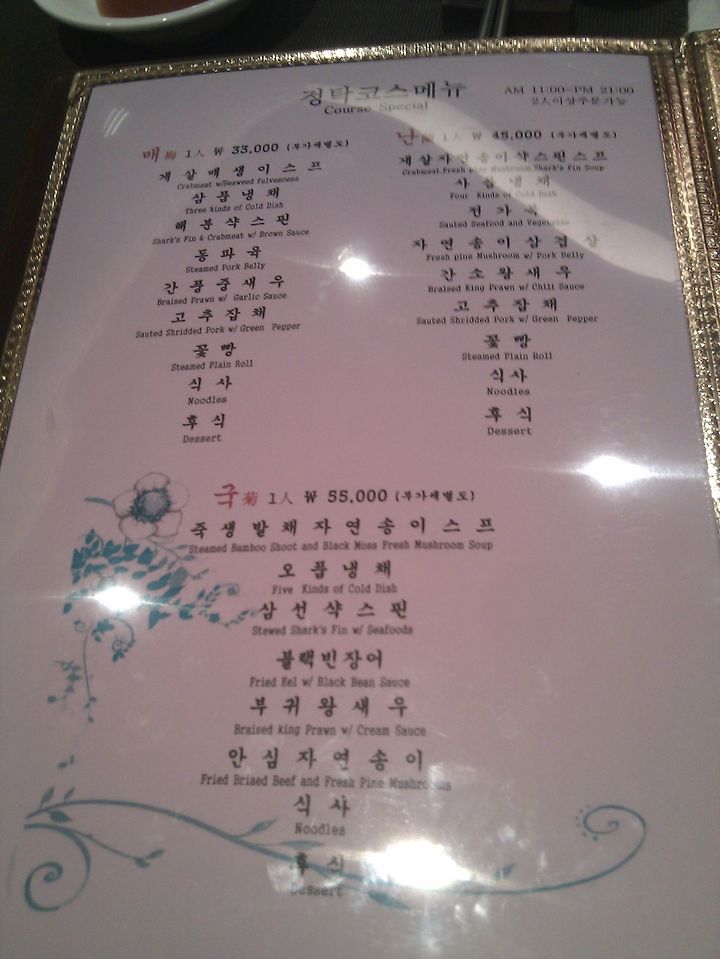 정탁코스메뉴
Course Special
AM 11:00~PM 21:00
2인이상주문가능
매 梅 1人 ₩ 33,000 (부가세별도)
게살매생이스프
Crabmeat w/Seaweed fulvescens
삼품냉채
Three kinds of Cold Dish
해분샥스핀
Shark's Fin & Crabmeat w/ Brown Sauce
동파육
Steamed Pork Belly
간풍중새우
Braised Prawn w/ Garlic Sauce
고추잡채
Sauted Shridded Pork w/ Green Pepper
꽃빵
Steamed Plain Roll
식사
Noodles
후식
Dessert
난 1人 ₩ 45,000 (부가세별도)
게살자연송이샥스핀스프
Crabmeat.Fresh pine Mushroom.Shark's Fin Soup
사품냉채
Four Kinds of Cold Dish
전가복
Sauted Seafood and Vegetable
자연송이삼겹살
Fresh pine Mushroom w/ Pork Belly
간소왕새우
Braised King Prawn w/ Chili Sauce
고추잡채
Sauted Shridded Pork w/ Green Pepper
꽃빵
Steamed Plain Roll
식사
Noodles
후식
Dessert
국 菊 1人 ₩ 55,000 (부가세별도)
죽생발채자연송이스프
Steamed Bamboo Shoot and Black Moss Fresh Mushroom Soup
오품냉채
Five Kinds of Cold Dish
삼선샥스핀
Stewed Shark's Fin w/ Seafoods
블랙빈장어
Fried Eel w/ Black Bean Sauce
부귀왕새우
Braised king Prawn w/ Cream Sauce
안심자연송이
Fried Briaed Beef and Fresh Pine Mushrooms
식사
Noodles
후식
Dessert